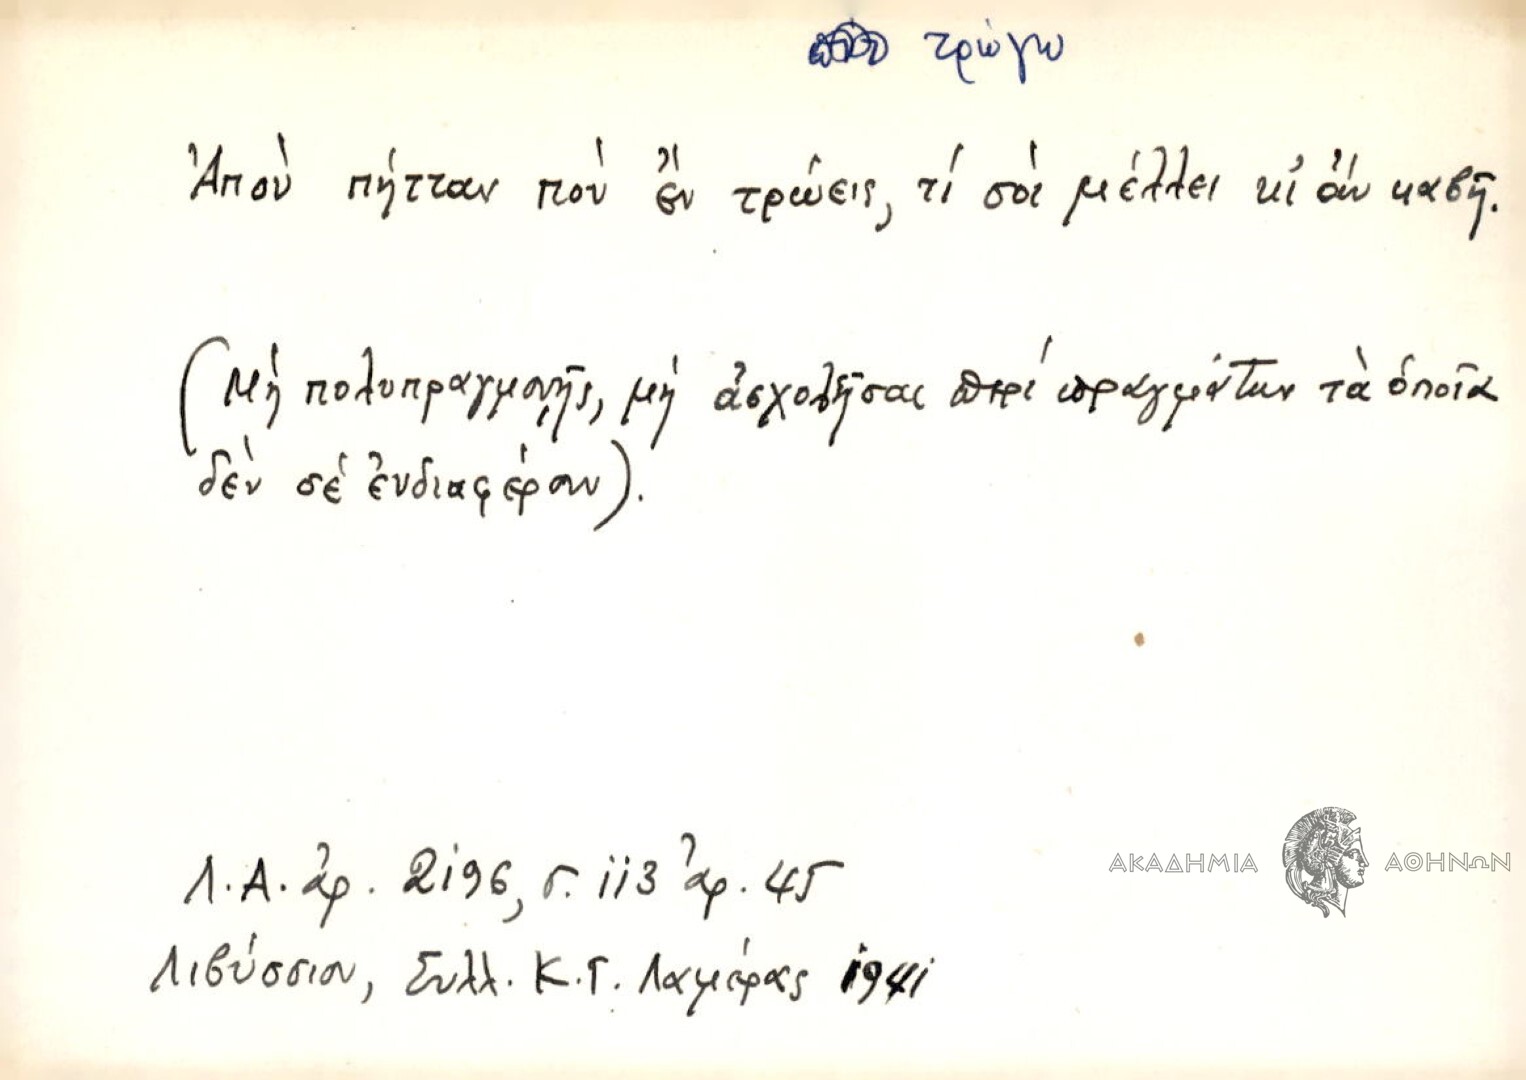 τρώγω
Ἀποὺ πήτταν ποὺ ἒν τρώεις, τί σοὶ μέλλει κι' ἂν καβῇ.
(Μὴ πολυπραγμονῇς, μὴ ἀσχολῆσαι περὶ πραγμάτων τὰ ὁποῖα
δὲν σὲ ἐνδιαφέρουν).
Λ.Α. ἀρ. 2196, σ. 113 ἀρ. 45
Λιβύσσιον, Συλλ. Κ.Γ. Λαμέρας 1941
ΑΚΑΔΗΜΙΑ ΑΘΗΝΩΝ